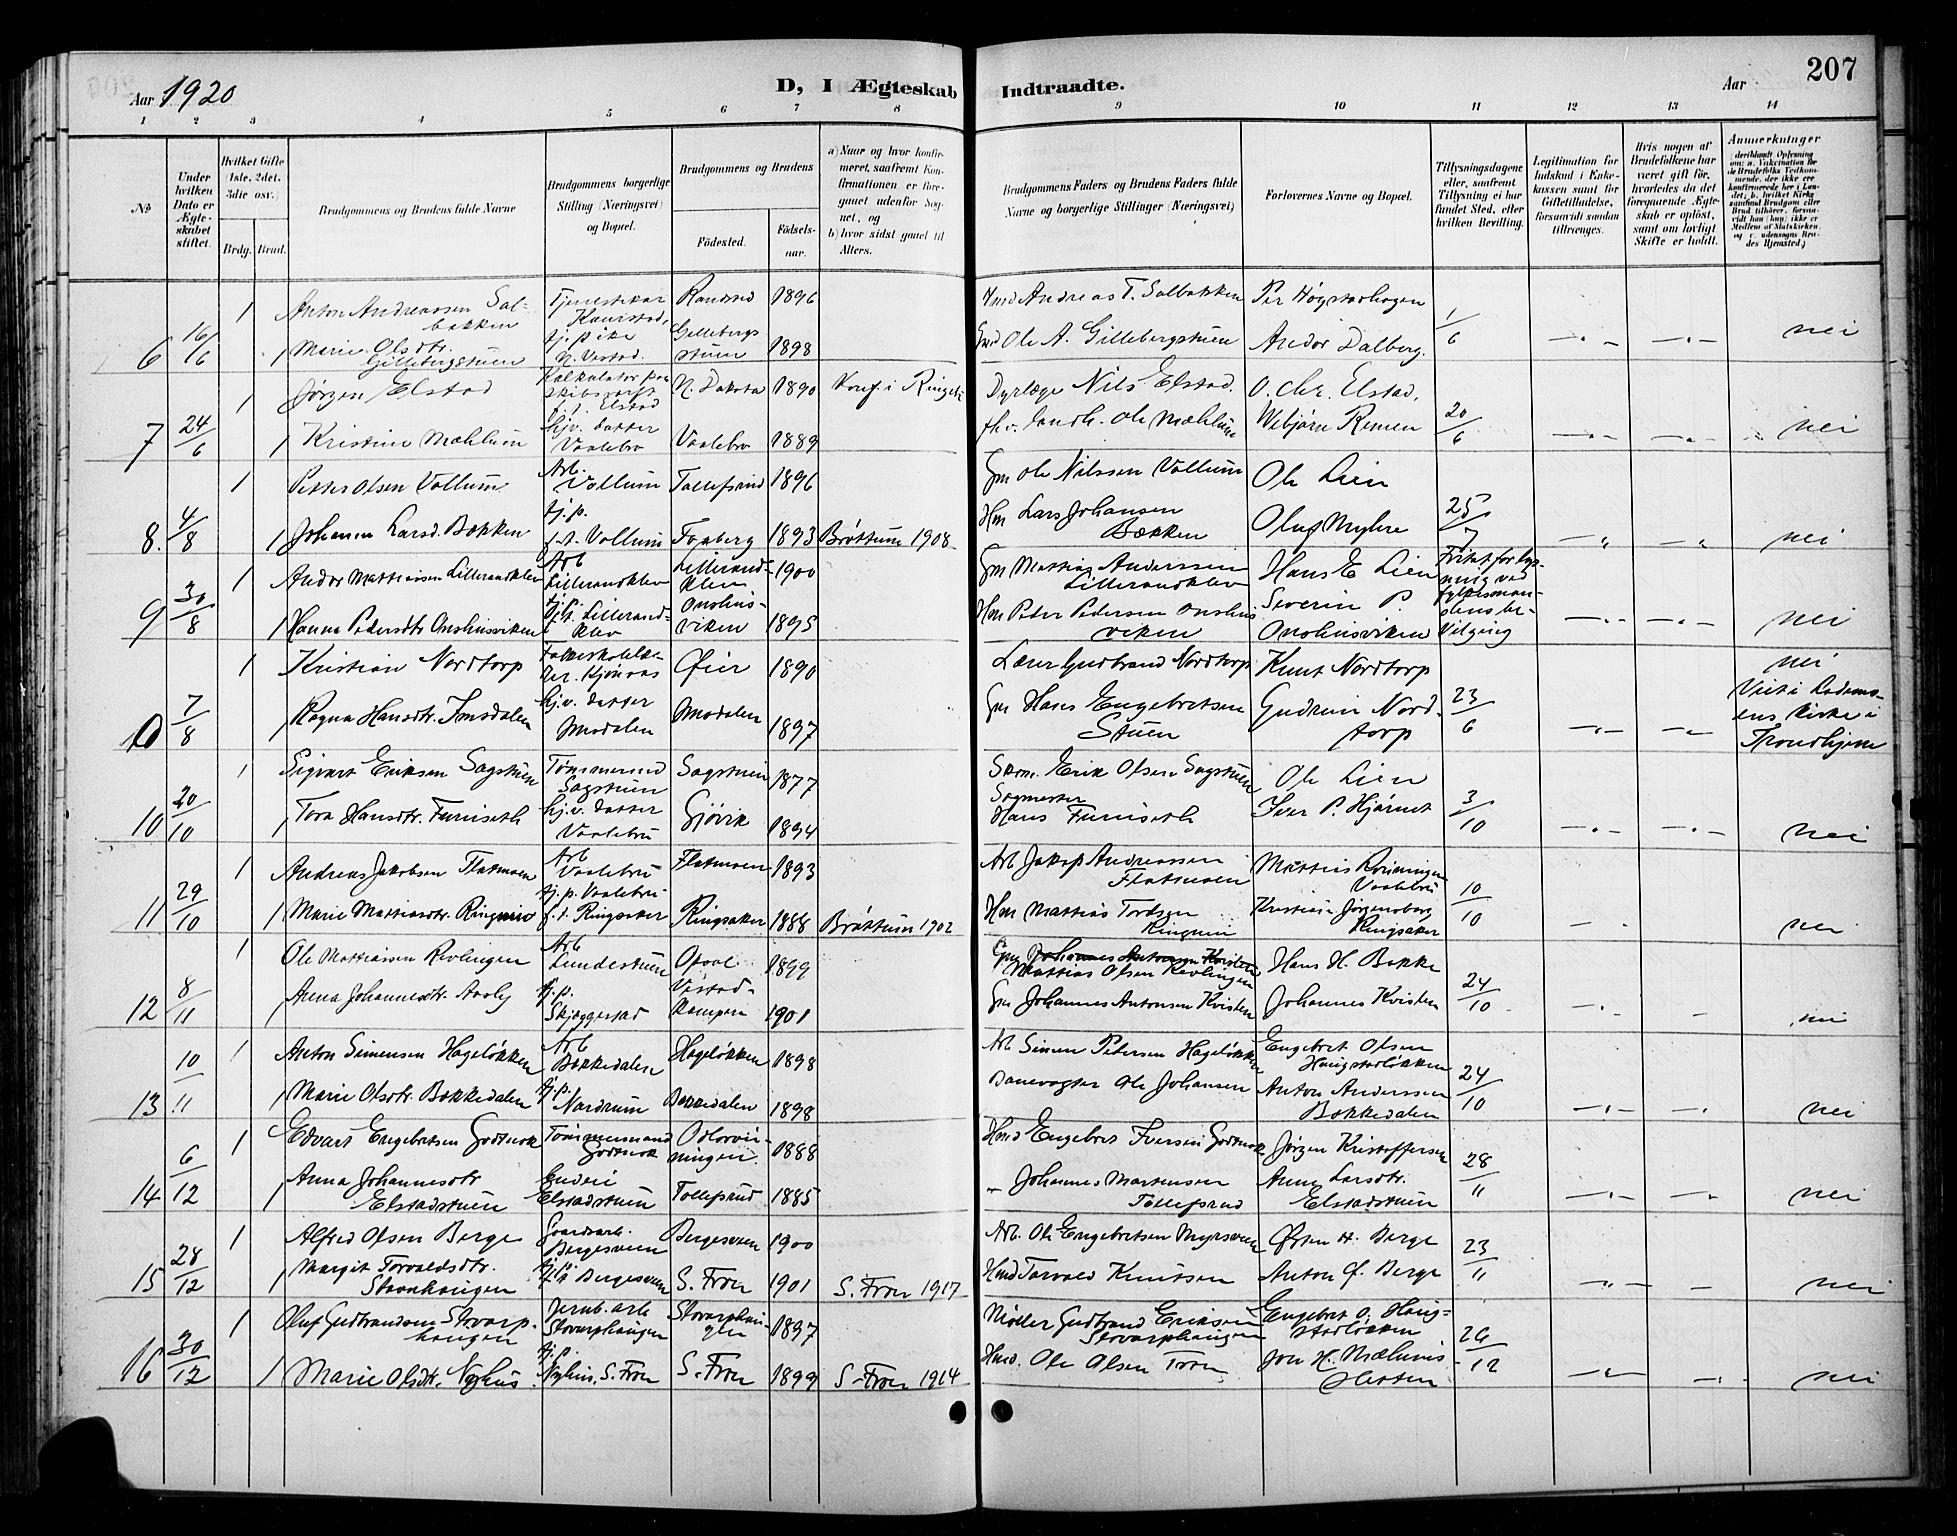 Aar 1920
D, I Ægteskab Indtraadte.
Aar
207
1 2 3 4 5 6 7 8 9 10 11 12 13 14
No
Under hvilken Dato er Ægteskabet stiftet.
Hvilket Gifte (1ste, 2det, 3die osv.)
Brdg. Brud.
Brudgommens og Brudens fulde Navne
Brudgommens borgerlige Stilling (Næringsvei) og Bopæl.
Brudgommens og Brudens
Födested.
Födselsaar.
a) Naar og hvor konfirmeret, saafremt Konfirmationen er foregaaet udenfor Sognet, og
b) hvor sidst gaaet til Alters.
Brudgommens Faders og Brudens Faders fulde Navne og borgerlige Stillinger (Næringsvei)
Forlovernes Navne og Bopæl.
Tillysningsdagene eller, saafremt Tillysning ei har fundet Sted, efter hvilken Bevilling.
Legitimation for Indskud i Enkekassen samt for Giftetilladelse, forsaavidt saadan tiltrænges.
Hvis nogen af Brudefolkene har været gift før, hvorledes da det foregaaende Ægteskab er opløst, samt om lovligt Skifte er holdt.
Anmerkninger
6 16/6 1 Anton Andreassen Salbakken Tjenestekar Kaurstad Randsted 1896 Hmd Andreas T. Salbakken Per Høgstadhagen 1/6
1 Marie Olsdtr. Gillebergstuen tj. pike N. Vestad. Gillebergstuen 1898 Gmd Ole A. Gillebergstuen Andor Dalberg. nei
7 24/6 1 Jørgen Elstad Kalkulator Elstad N. Dakota 1890 Konf. i Dyrlæge Nils Elstad. O. Chr. Elstad. 20/6
1 Kristine Mæhlum hjv. datter Vaalebro Vaalebro 1889 fhv. landh. Ole Mæhlum Vebjørn Remen nei
8. 4/8 1 Petter Olsen Vollum Arb. Vollum Tollefsrud 1896 Gm Ole Nilssen Vollum Ole Lien 25/7
1 Johanne Larsd. Bækken tj. p. f. t. Vollum Faaberg 1893 Brøttum 1908 Hm Lars Johansen Bækken Oluf Myhre nei
9 30/8 1 Andor Mattiassen Lillerandklev Arb Lillerandklev Lillerandklev 1900 Gm Mattias Anderssen Lillerandklev Hans E Lien Fritat for lysning ved fylkesmandens bevilgning
1 Hanna Pedersdtr Onshusviken Lillerandklev Onshusviken 1895 Hm Peder Pedersen Onshusviken Severin P. Onshusviken nei
10 7/8 1 Kristian Nordtorp Folkeskolelærer. Øier 1890 Lærer Gudbrand Nordtorp Knut Nordtorp 23/6 nei
1 Ragna Hansdtr. Imsdalen hjv. datter Imsdalen Imsdalen 1897 Gm Hans Engebretsen Stuen Gudrun Nordtorp Viet i Lademoens Kirke i Trondhjem
10 20/10 1 Sigvart Eriksen Sagstuen Tømmermd Sagstuen Sagstuen 1877 Skom. Erik Olsen Sagstuen Ole Lien 3/10
1 Tora Hansdtr. Furuseth hjv. datter Vaalebru Gjøvik 1894 Sagmester Hans Furuseth Iver P. Hjørnet nei
11 29/10 1 Andreas Jakobsen Flatmoen Arb Vaalebru Flatmoen 1893 Arb Jakop Andreassen Flatmoen Mattias Rønningen Vaalebru 10/10
1 Marie Mattiasdtr. Ringmin tj. p. Vaalebru f. t. Ringsaker Ringsaker 1888 Brøttum 1902 Hm Mattias Tordsen Ringmin Kristian Jørgensberg Ringsaker nei
12 8/11 1 Ole Mattiassen Revlingen Arb Lundestuen Opsal 1899 Gm Johannes Antonsen Kvisten Mattias Olsen Revlingen Hans H. Bakke 24/10
1 Anna Johannesdtr Aasby tj. p. Skjæggestad Vestadkampen 1901 Gm Johannes Antonsen Kvisten Johannes Kvisten nei
13 10/11 1 Anton Simensen Hageløkken Arb Bækkedalen Hageløkken 1898 Arb Simen Petersen Hageløkken Engebret Olsen Haugstadløkken 24/10
1 Marie Olsdtr. Bækkedalen tj. p. Nordrum Bækkedalen 1898 Banevogter Ole Johansen Anton Anderssen Bækkedalen nei
14 6/12 1 Edvart Engebretsen Godtnok Tømmermand Godtnok 1888 Hmd Engebret Iversen Godtnok Jørgen Kristoffersen 28/11
1 Anna Johannesdtr Elstadstuen Elstadstuen Tollefsrud 1885 " Johannes Martensen Tollefsrud Anne Larsdtr. Elstadstuen nei
15 28/12 1 Alfred Olsen Berge Gaardsarb. Bergesveen Bergesveen 1900 Arb. Ole Engebretsen Myrsveen Østen H. Berge 23/11
1 Margit Torvaldsdtr. Stavnhaugen tj. p. f. t. Bergesveen S. Fron 1901 S. Fron 1917 Hmd Torvald Knutsen Anton O. Berge nei
16 30/12 1 Oluf Gudbrandsen Stovarphaugen Jernb. arb Stovarphaugen Stovarphaugen 1897 Møller Gudbrand Eriksen Stovarphaugen Engebret O. Haugstadløkken 26/12
1 Marie Olsdtr. Nyhus tj. p. Nyhus, S. Fron S. Fron 1899 S. Fron 1914 Hmd. Ole Olsen Tron Jon H. Mælums nei